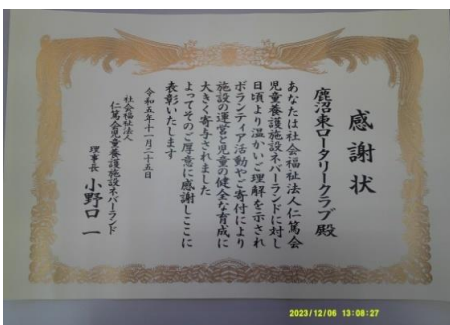 感謝状
鹿沼東ロータリークラブ殿
あなたは社会福祉法人仁篤会
児童養護施設ネバーランドに対し
日頃より温かいご理解を示され
ボランティア活動やご寄付により
施設の運営と児童の健全な育成に
大きく寄与されました
よってそのご厚意に感謝しここに
表彰いたします
令和五年十一月二十五日
社会福祉法人
仁篤会児童養護施設ネバーランド
理事長 小野口 一
2023/12/06 13:08:27